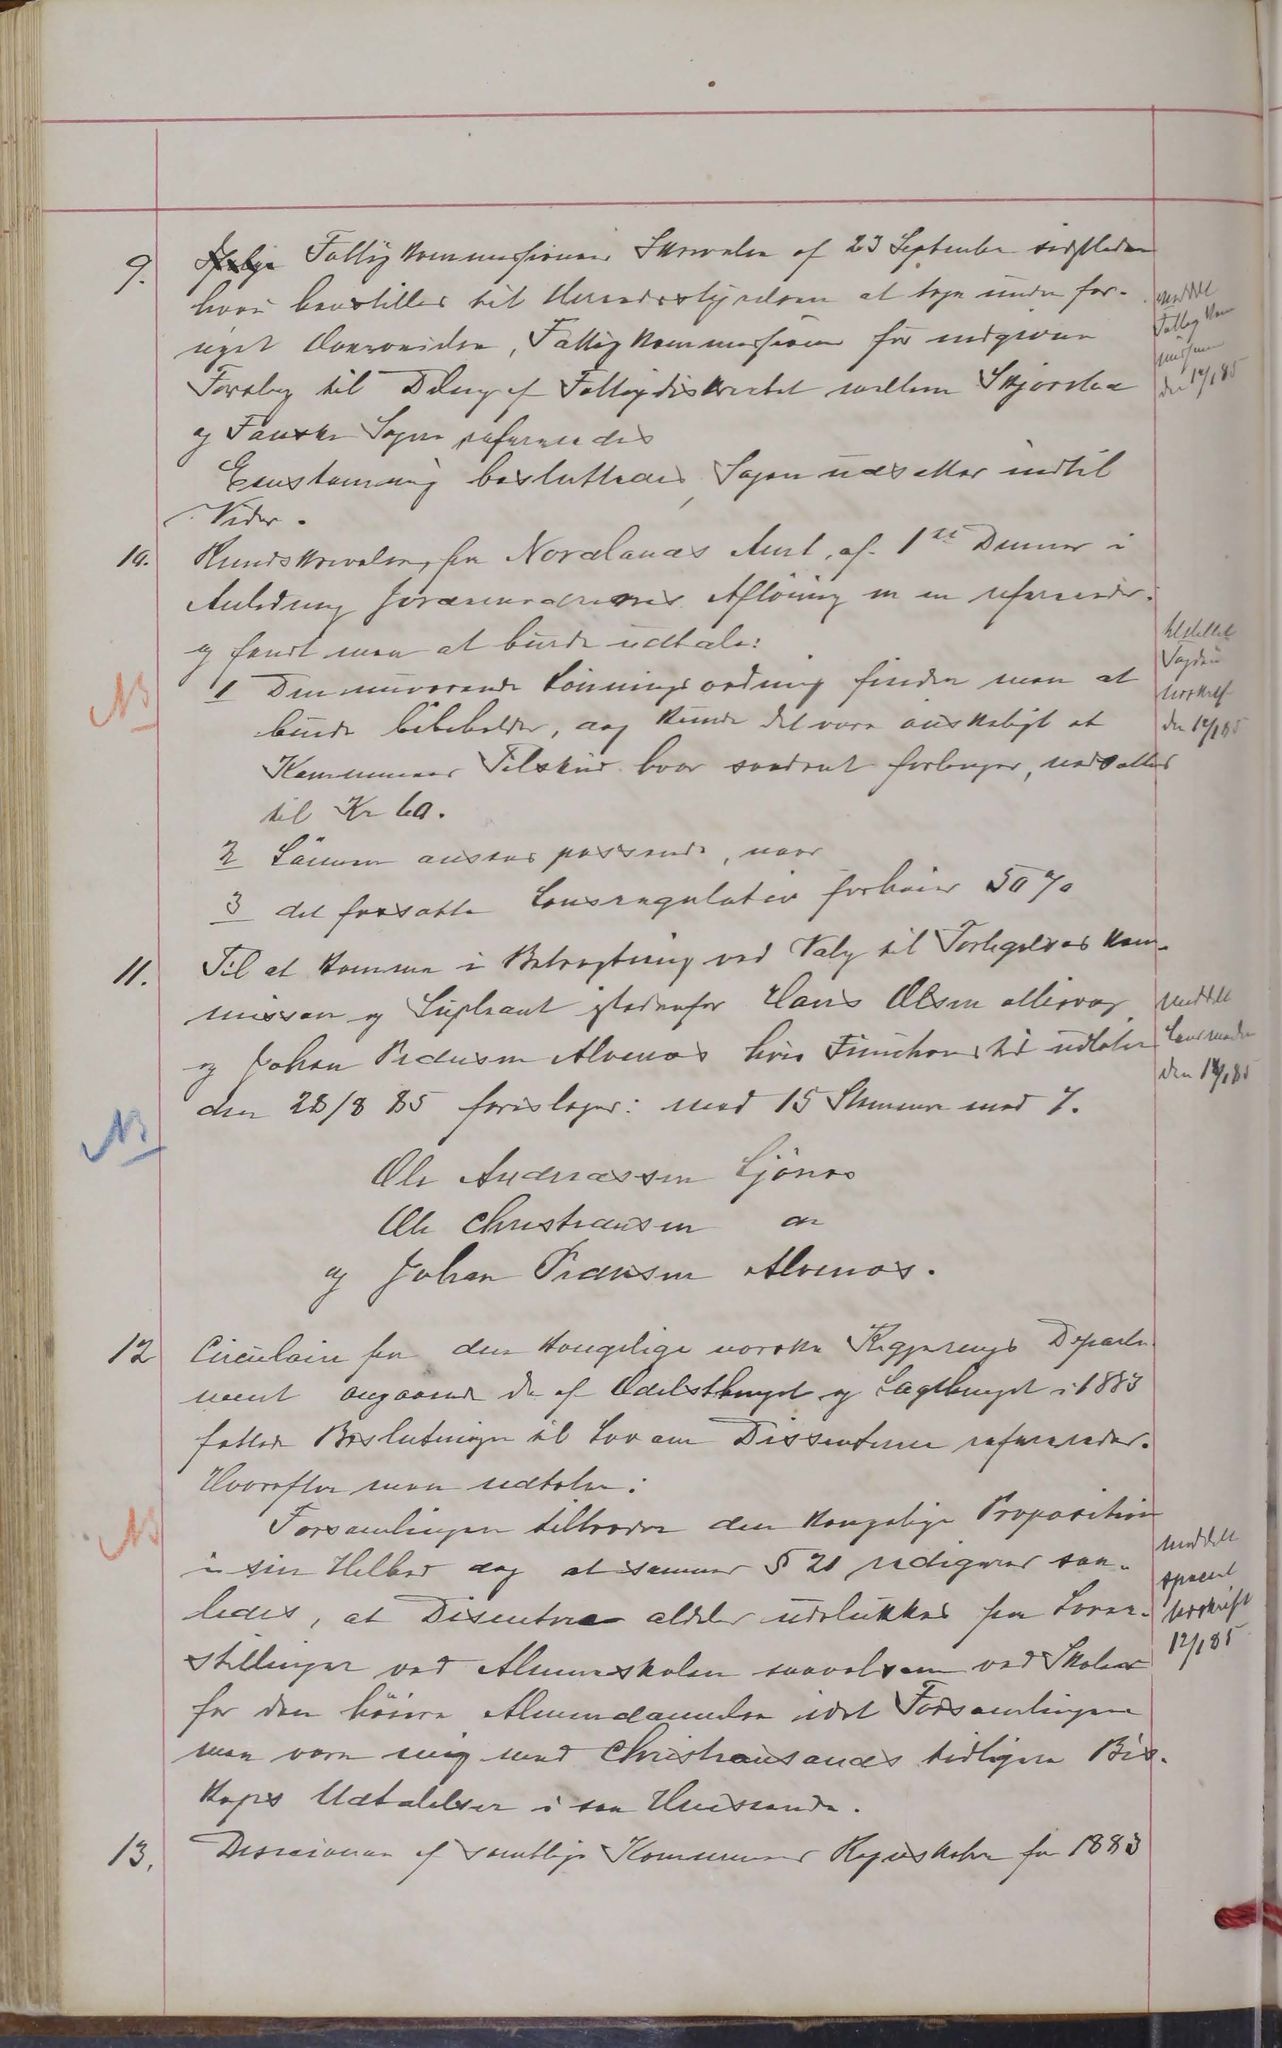 9. Fattigkommissionens Skrivelse af 23 September sidstleden
hvori henstilles til Herredsstyrelsen at tage under for-
nyet Overveielse, Fattigkommissionens før indgivne
Forslag til Deling af Fattigdistriktet mellem Skjerstad
og Fauske Sogne refereredes
Eenstemmig besluttedes, Sagen udsættes indtil
Videre.
meddelt
Fattigkom
missionen
den 12/1 85
10. Rundskrivelse fra Nordlands Amt, af 1ste Dennes i
Anledning Jordemødrenes Aflønning m m refereredes.
og fandt man at burde udtale:
NB
1 Den nuværende Lønningsordning finder man at
burde bibeholdes, dog kunde det være ønskeligt at
Kommunens Tilskud hvor saadant forlanges, nedsættes
til Kr 60.
2 Lønnen ansees passende, naar
3 det forsatte Lønsregulativ forhøies 50 %
tilstillet
Fogden
Udskrift
den 12/1 85
11. Til at komme i Betragtning ved Valg til Forligelses Kom-
mission og Supleant istedenfor Hans Olsen
og Johan Pedersen Alvenæs hvis Funktionstid udløber
den 28/8 85 foreslages: med 15 Stemmer mod 7.
meddelt
Lensmanden
den 12/1 85
NB
Ole Andreassen Ljønes
Ole Christiansen do
og Johan Pedersen Alvenæs.
12 Circulaire fra den kongelige norske Regjerings Departe-
ment angaaende de af Odelsthinget og Lagthinget i 1883
fattede Beslutninger til Lov om Dissentere refereredes.
Hvorefter man udtaler:
NB
Forsamlingen tiltræder den kongelige Proposition
i sin Helhed dog at sammes § 21 redigeres saa-
ledes, at Disentere aldeles udelukkes fra Lærer-
stillinger ved Almueskolen saavelsom ved Skoler
for den høiere Almendannelse idet Forsamlingen
maa være enig med Christiansands tidligere Bis-
kops Udtalelser i saa Henseende.
meddelt
special
Udskrift
12/1 85
13. Decisionen af samtlige Kommunens Regnskaber for 1883